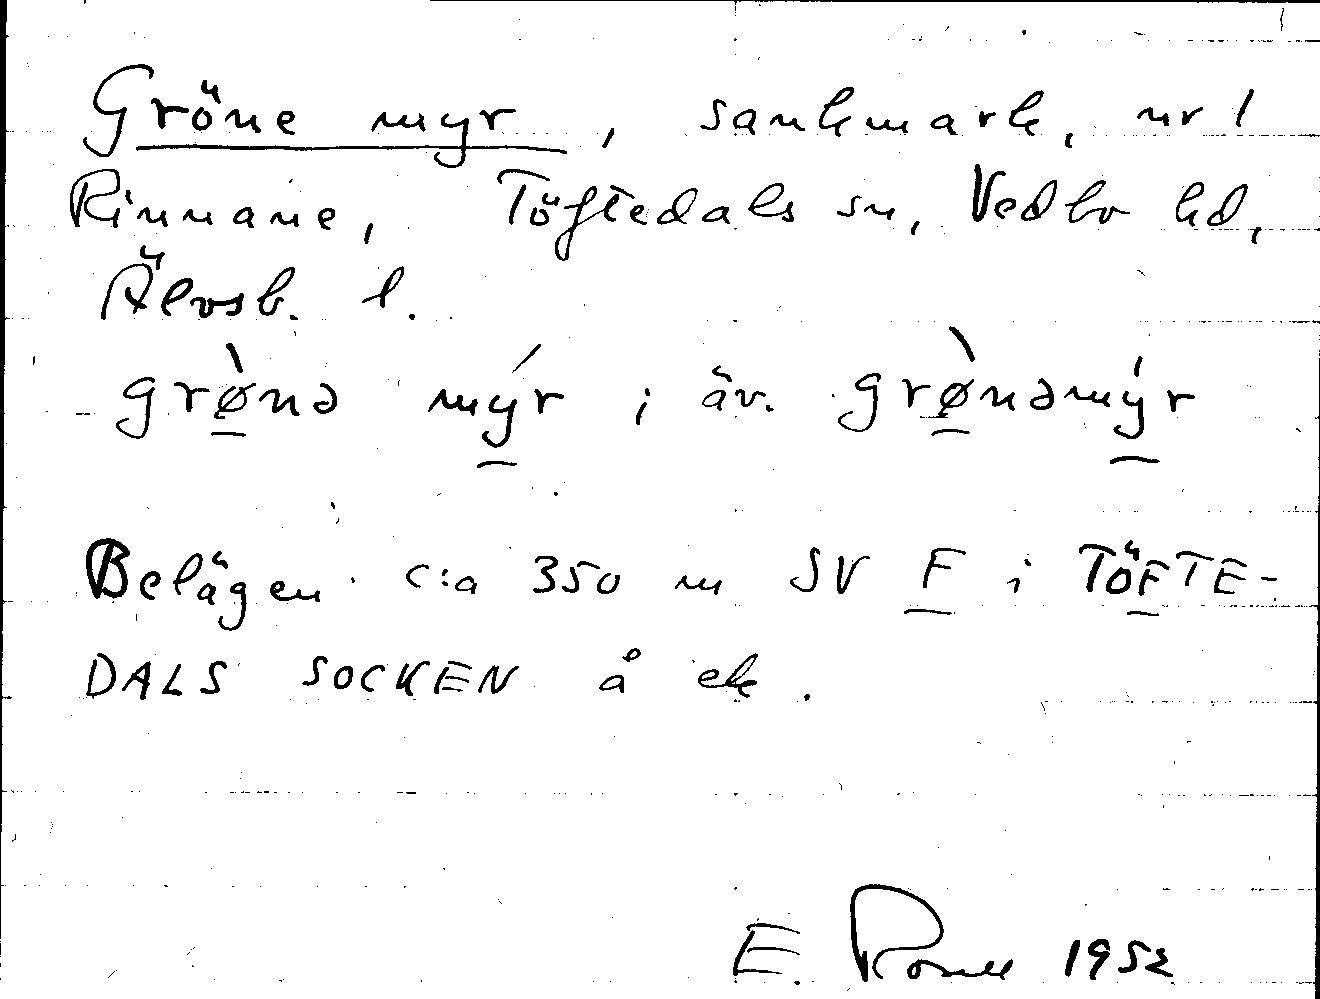 Gröne myr, sankmark, nr 1
Rinnane, Töftedals sn, Vedbo hd,
Älvsb. l.
grø̀nə mýr; äv. grø̀nəmýr
Belägen c:a 350 m SV F i TÖFTE-
DALS SOCKEN å ek.
E. 1952